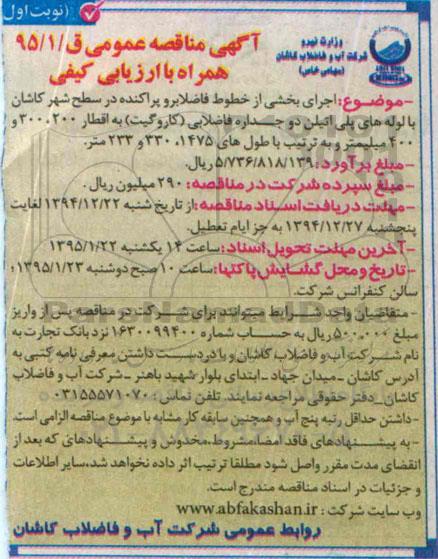 (نوبت اول
وزارت نیرو
شرکت آب و فاضلاب کاشان
(سهامی خاص)
آگهی مناقصه عمومی ق/۹۵/۱
همراه با ارزیابی کیفی
-موضوع: اجرای بخشی از خطوط فاضلابرو پراکنده در سطح شهر کاشان
با لوله های پلی اتیلن دو جداره فاضلابی (کاروگیت) به اقطار ۲۰۰، ۳۰۰ و
۴۰۰ میلیمتر و به ترتیب با طول های ۱۴۷۵، ۳۳۰ و ۲۳۳ متر.
-مبلغ برآورد: ۵/۷۳۶/۸۱۸/۱۳۹ ریال.
-مبلغ سپرده شرکت در مناقصه: ۲۹۰ میلیون ریال.
-مهلت دریافت اسناد مناقصه: از تاریخ شنبه ۱۳۹۴/۱۲/۲۲ لغایت
پنجشنبه ۱۳۹۴/۱۲/۲۷ به جز ایام تعطیل.
-آخرین مهلت تحویل اسناد: ساعت ۱۴ یکشنبه ۱۳۹۵/۱/۲۲
-تاریخ و محل گشایش پاکتها: ساعت ۱۰ صبح دوشنبه ۱۳۹۵/۱/۲۳؛
سالن کنفرانس شرکت.
-متقاضیان واجد شرایط میتوانند برای شرکت در مناقصه پس از واریز
مبلغ ۵۰۰,۰۰۰ ریال به حساب شماره ۱۶۳۰۰۹۹۴۰۰ نزد بانک تجارت به
نام شرکت آب و فاضلاب کاشان و با در دست داشتن معرفی نامه کتبی به
آدرس کاشان -میدان جهاد -ابتدای بلوار شهید باهنر -شرکت آب و فاضلاب
کاشان -دفتر حقوقی مراجعه نمایند. تلفن تماس: ۰۳۱۵۵۵۷۱۰۷۰
-داشتن حداقل رتبه پنج آب و همچنین سابقه کار مشابه با موضوع مناقصه الزامی است.
-به پیشنهادهای فاقد امضا، مشروط، مخدوش و پیشنهادهای که بعد از
انقضای مدت مقرر واصل شود مطلقا ترتیب اثر داده نخواهد شد، سایر اطلاعات
و جزئیات در اسناد مناقصه مندرج است.
وب سایت شرکت: www.abfakashan.ir
روابط عمومی شرکت آب و فاضلاب کاشان